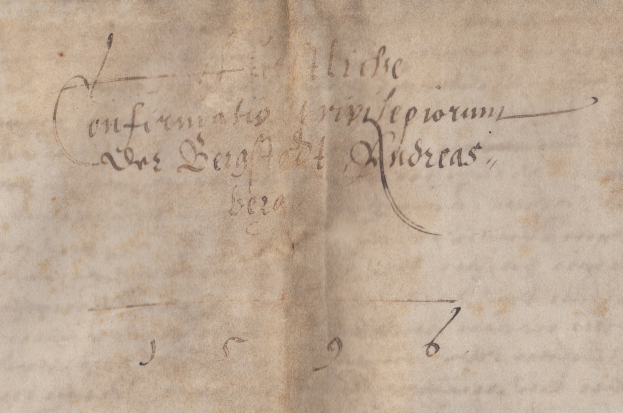 Fürstliche
Confirmatio Privilegiorum
Der Bergstadt Andreas-
berg
1 5 9 6